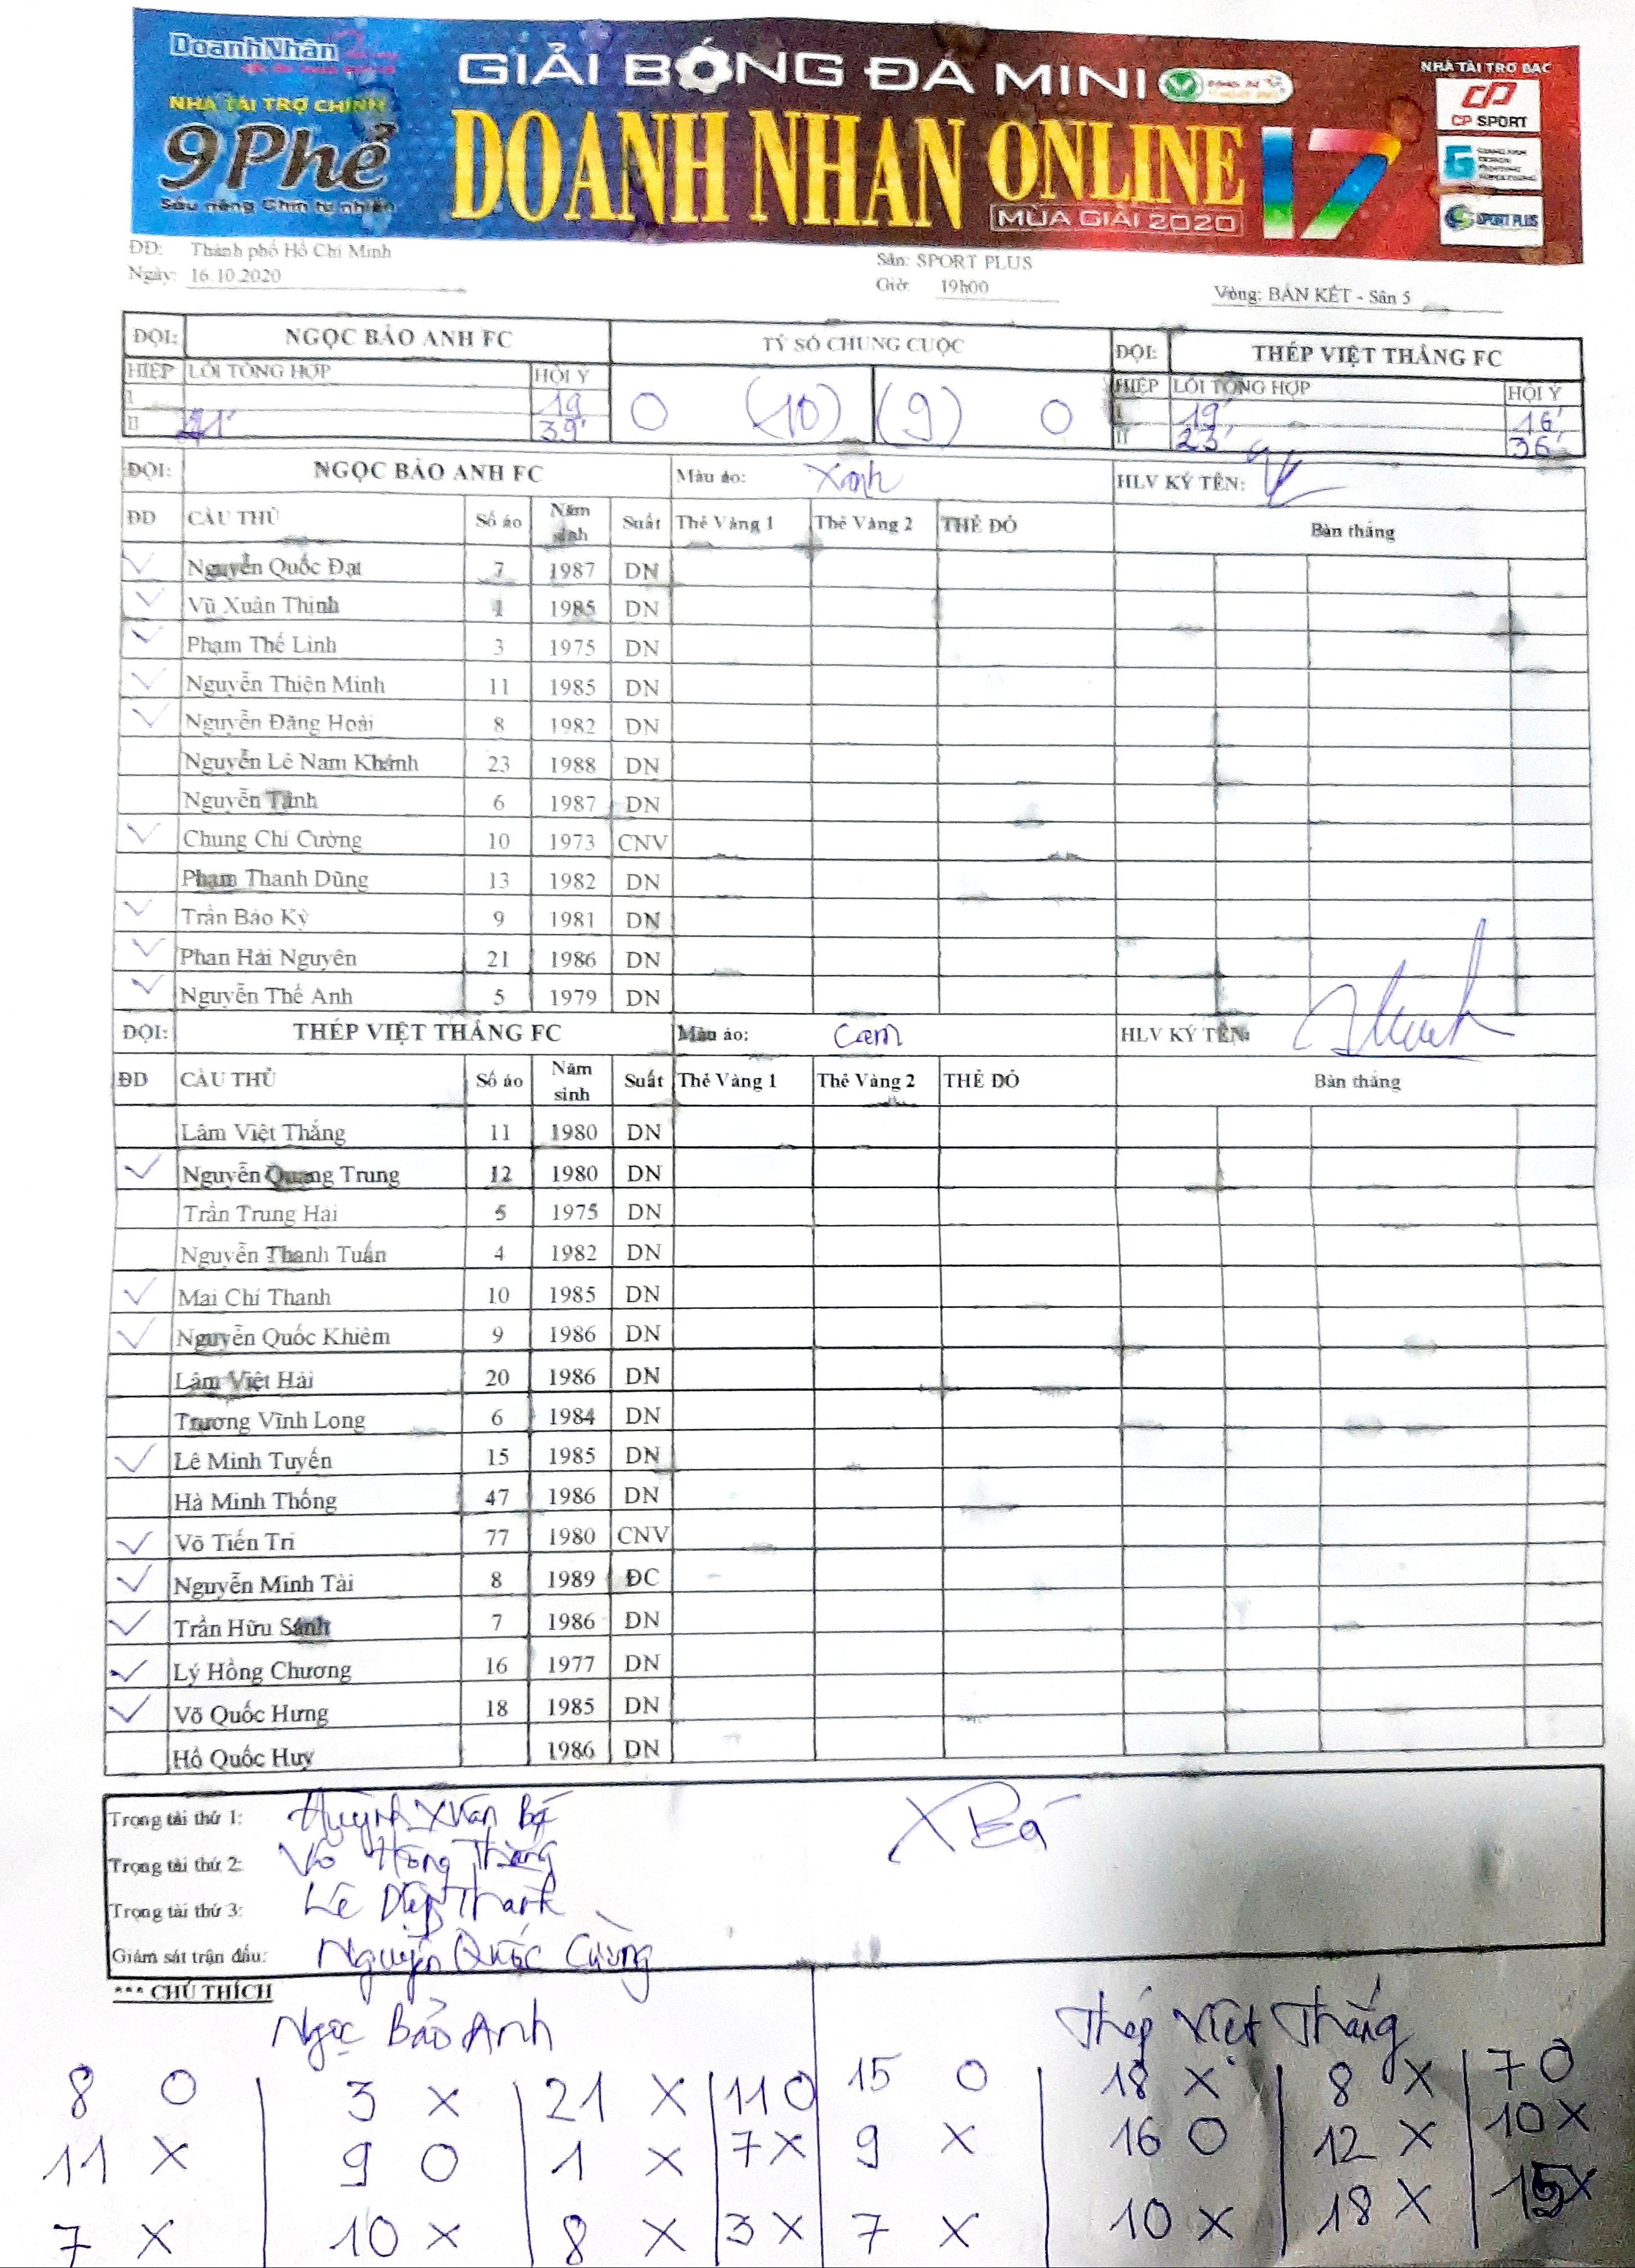 DoanhNhân
GIẢI BÓNG ĐÁ MINI
NHÀ TÀI TRỢ BẠC
NHÀ TÀI TRỢ CHÍNH
9Phẻ
Sầu riêng Chín tự nhiên
DOANH NHAN ONLINE 17
MÙA GIẢI 2020
CP SPORT
SPORT PLUS
ĐĐ: Thành phố Hồ Chí Minh
Sân: SPORT PLUS
Ngày: 16.10.2020
Giờ: 19h00
Vòng: BÁN KẾT - Sân 5
ĐỘI: NGỌC BẢO ANH FC TỶ SỐ CHUNG CUỘC ĐỘI: THÉP VIỆT THẮNG FC
HIỆP LỖI TỔNG HỢP HỘI Ý HIỆP LỖI TỔNG HỢP HỘI Ý
I 19 0 (10) (9) 0 I 19' 16'
II 21' 39' II 23' 36'
ĐỘI: NGỌC BẢO ANH FC Màu áo: Xanh HLV KÝ TÊN:
ĐD CẦU THỦ Số áo Năm sinh Suất Thẻ Vàng 1 Thẻ Vàng 2 THẺ ĐỎ Bàn thắng
Nguyễn Quốc Đạt 7 1987 DN
Vũ Xuân Thịnh 1 1985 DN
Phạm Thế Linh 3 1975 DN
Nguyễn Thiện Minh 11 1985 DN
Nguyễn Đăng Hoài 8 1982 DN
Nguyễn Lê Nam Khánh 23 1988 DN
Nguyễn Tánh 6 1987 DN
Chung Chí Cường 10 1973 CNV
Phạm Thanh Dũng 13 1982 DN
Trần Bảo Kỳ 9 1981 DN
Phan Hải Nguyên 21 1986 DN
Nguyễn Thế Anh 5 1979 DN
ĐỘI: THÉP VIỆT THẮNG FC Màu áo: Cam HLV KÝ TÊN:
ĐD CẦU THỦ Số áo Năm sinh Suất Thẻ Vàng 1 Thẻ Vàng 2 THẺ ĐỎ Bàn thắng
Lâm Việt Thắng 11 1980 DN
Nguyễn Quang Trung 12 1980 DN
Trần Trung Hải 5 1975 DN
Nguyễn Thanh Tuấn 4 1982 DN
Mai Chí Thanh 10 1985 DN
Nguyễn Quốc Khiêm 9 1986 DN
Lâm Việt Hải 20 1986 DN
Trương Vĩnh Long 6 1984 DN
Lê Minh Tuyến 15 1985 DN
Hà Minh Thống 47 1986 DN
Võ Tiến Trí 77 1980 CNV
Nguyễn Minh Tài 8 1989 ĐC
Trần Hữu Sánh 7 1986 DN
Lý Hồng Chương 16 1977 DN
Võ Quốc Hưng 18 1985 DN
Hồ Quốc Huy 1986 DN
Trọng tài thứ 1: Huỳnh Xuân Bá X Bá
Trọng tài thứ 2: Võ Hồng Thắng
Trọng tài thứ 3: Lê Diệp Thanh
Giám sát trận đấu: Nguyễn Quốc Cường
*** CHÚ THÍCH
Ngọc Bảo Anh Thép Việt Thắng
8 O 3 X 21 X 11 O 15 O 18 X 8 X 7 O
11 X 9 O 1 X 7 X 9 X 16 O 12 X 10 X
7 X 10 X 8 X 3 X 7 X 10 X 18 X 15 X